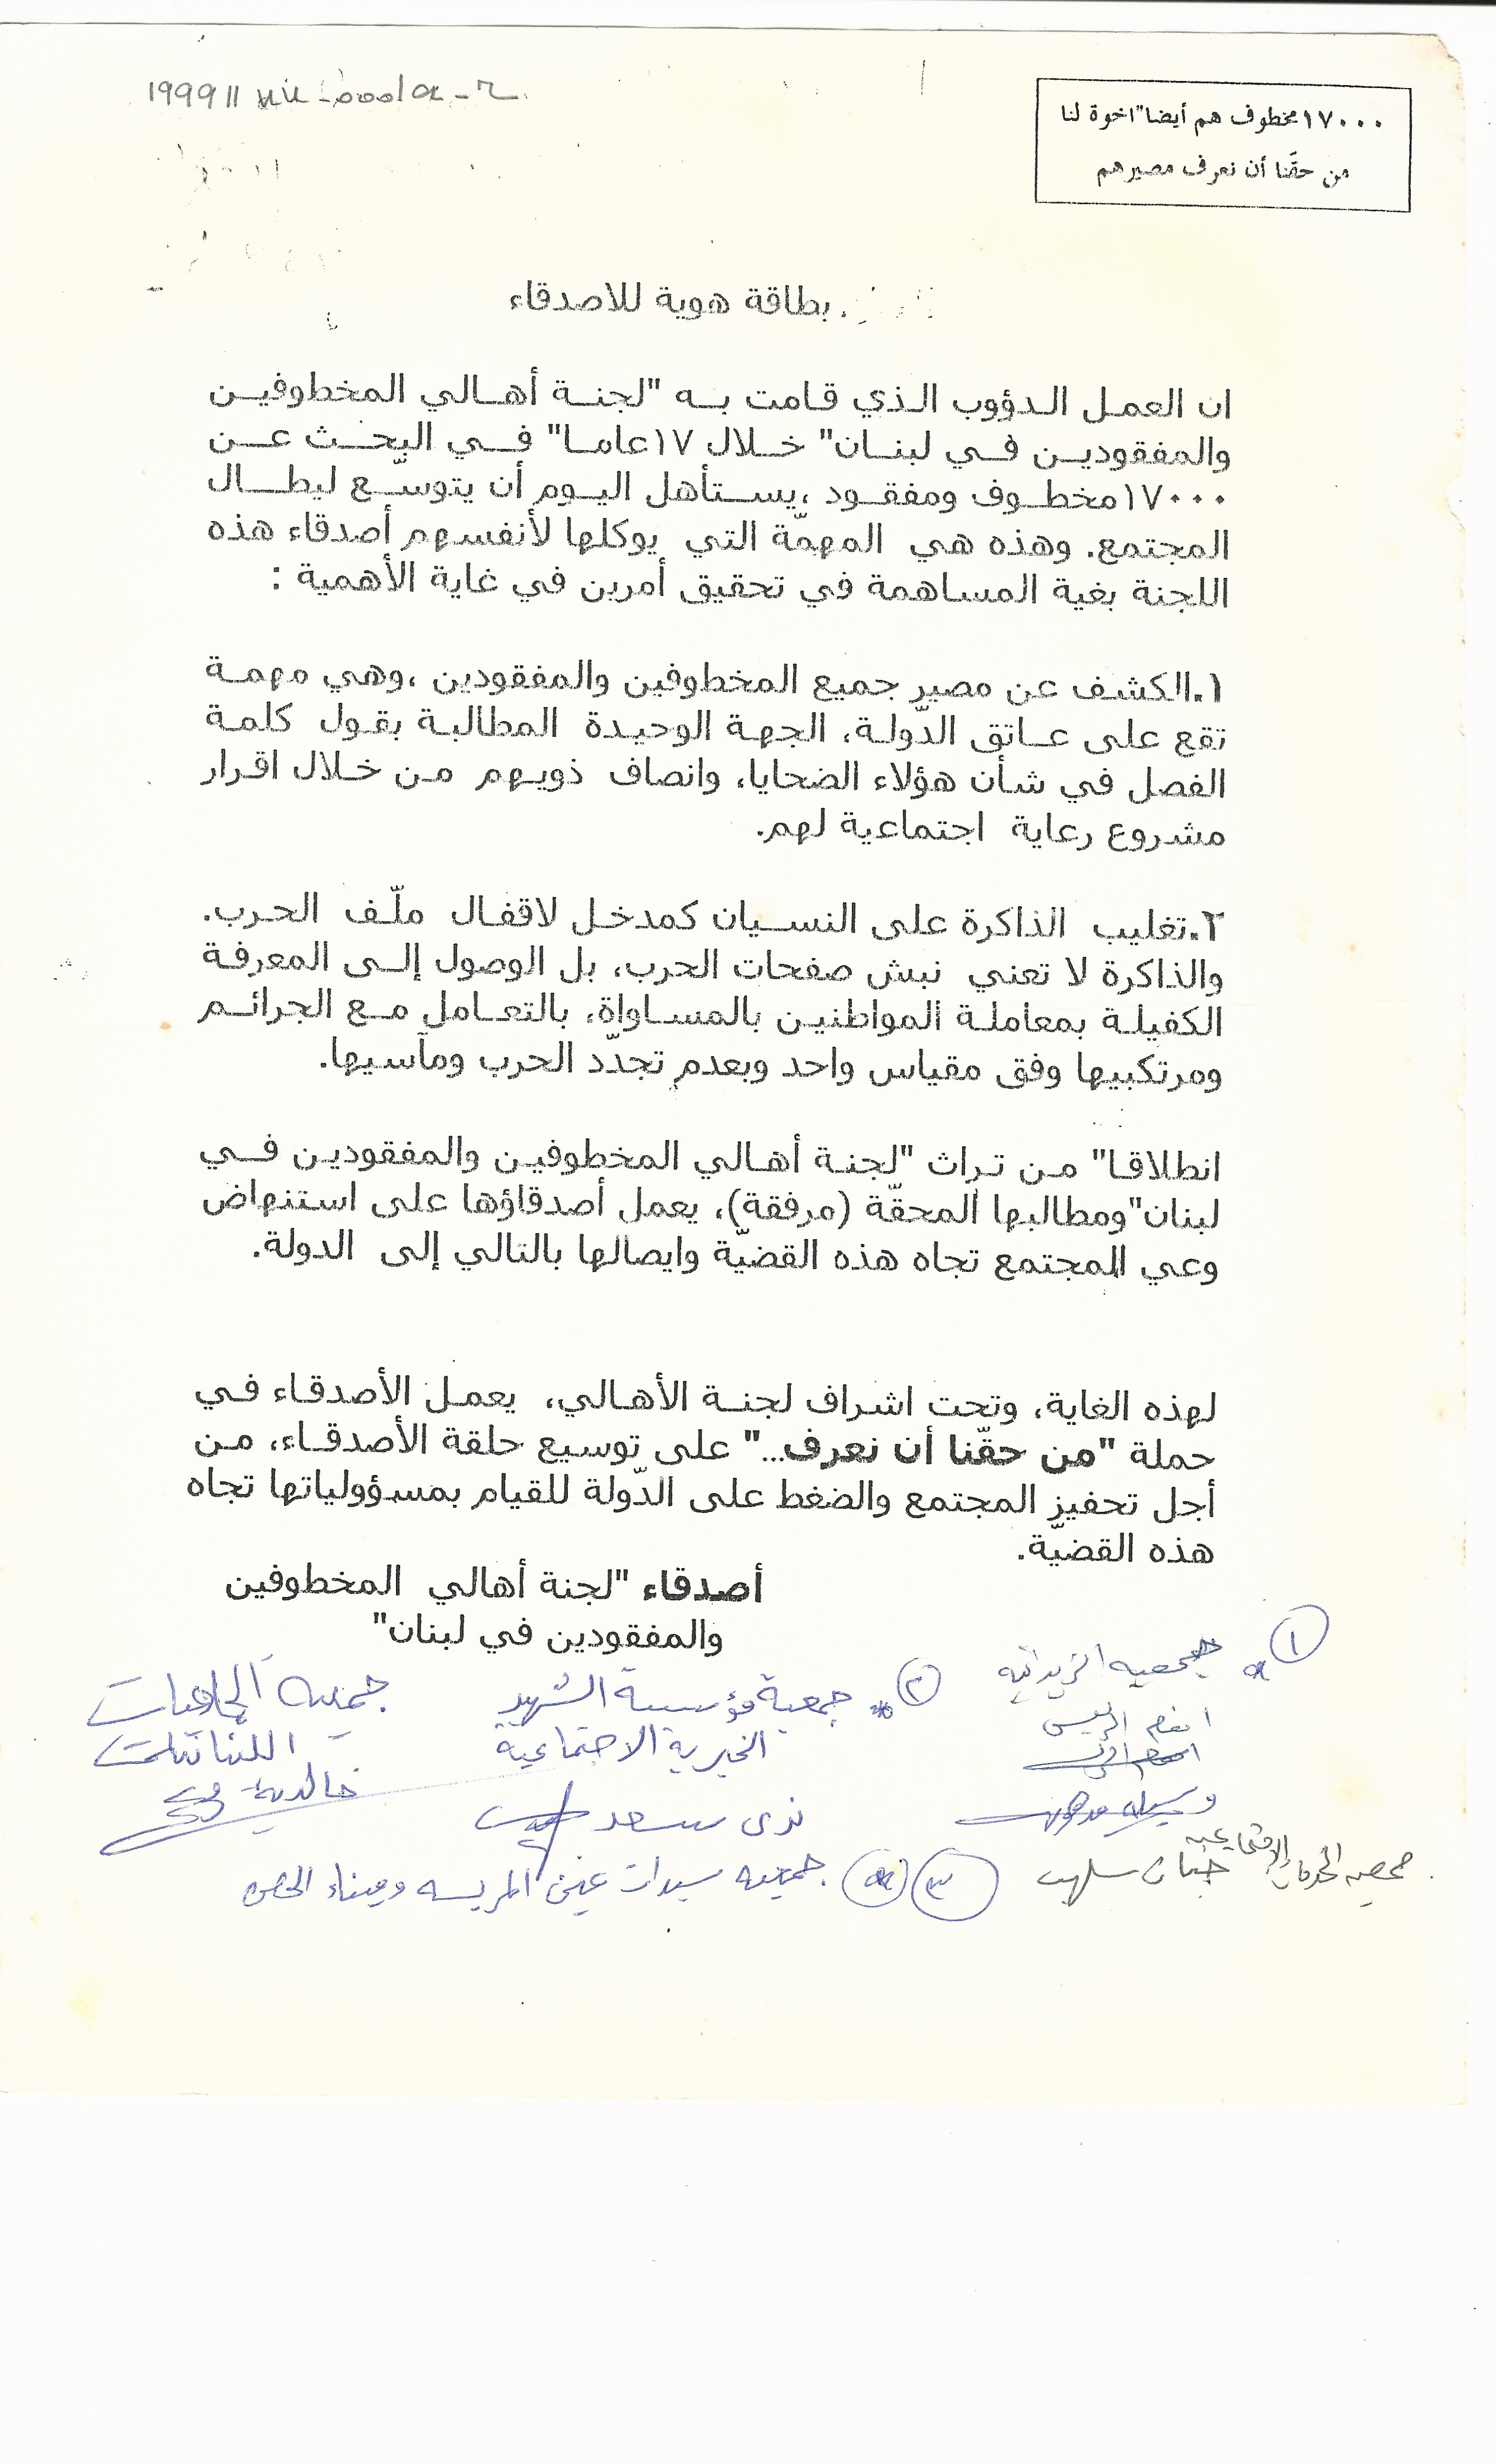 ١٧٠٠٠ مخطوف هم أيضا" اخوة لنا
من حقّنا أن نعرف مصيرهم
بطاقة هوية للاصدقاء
ان العمل الدؤوب الذي قامت به "لجنة أهالي المخطوفين
والمفقودين في لبنان" خلال ١٧ عاما" في البحث عن
١٧٠٠٠ مخطوف ومفقود ،يستأهل اليوم أن يتوسّع ليطال
المجتمع. وهذه هي المهمّة التي يوكلها لأنفسهم أصدقاء هذه
اللجنة بغية المساهمة في تحقيق أمرين في غاية الأهمية :
١.الكشف عن مصير جميع المخطوفين والمفقودين ،وهي مهمة
تقع على عاتق الدّولة، الجهة الوحيدة المطالبة بقول كلمة
الفصل في شأن هؤلاء الضحايا، وانصاف ذويهم من خلال اقرار
مشروع رعاية اجتماعية لهم.
٢.تغليب الذاكرة على النسيان كمدخل لاقفال ملّف الحرب.
والذاكرة لا تعني نبش صفحات الحرب، بل الوصول إلى المعرفة
الكفيلة بمعاملة المواطنين بالمساواة، بالتعامل مع الجرائم
ومرتكبيها وفق مقياس واحد وبعدم تجدّد الحرب ومآسيها.
انطلاقا" من تراث "لجنة أهالي المخطوفين والمفقودين في
لبنان"ومطالبها المحقّة (مرفقة)، يعمل أصدقاؤها على استنهاض
وعي المجتمع تجاه هذه القضيّة وايصالها بالتالي إلى الدولة.
لهذه الغاية، وتحت اشراف لجنة الأهالي، يعمل الأصدقاء في
حملة "من حقّنا أن نعرف..." على توسيع حلقة الأصدقاء، من
أجل تحفيز المجتمع والضغط على الدّولة للقيام بمسؤولياتها تجاه
هذه القضيّة.
أصدقاء "لجنة أهالي المخطوفين
والمفقودين في لبنان"
١
انعام الريس
٢ * جمعية مؤسسة الشهيد
الخيرية الاجتماعية
ندى سعد
جمعية
اللبنانيات
حنان سلهب
٣ جمعيه سيدات عين المريسه وميناء الحصن